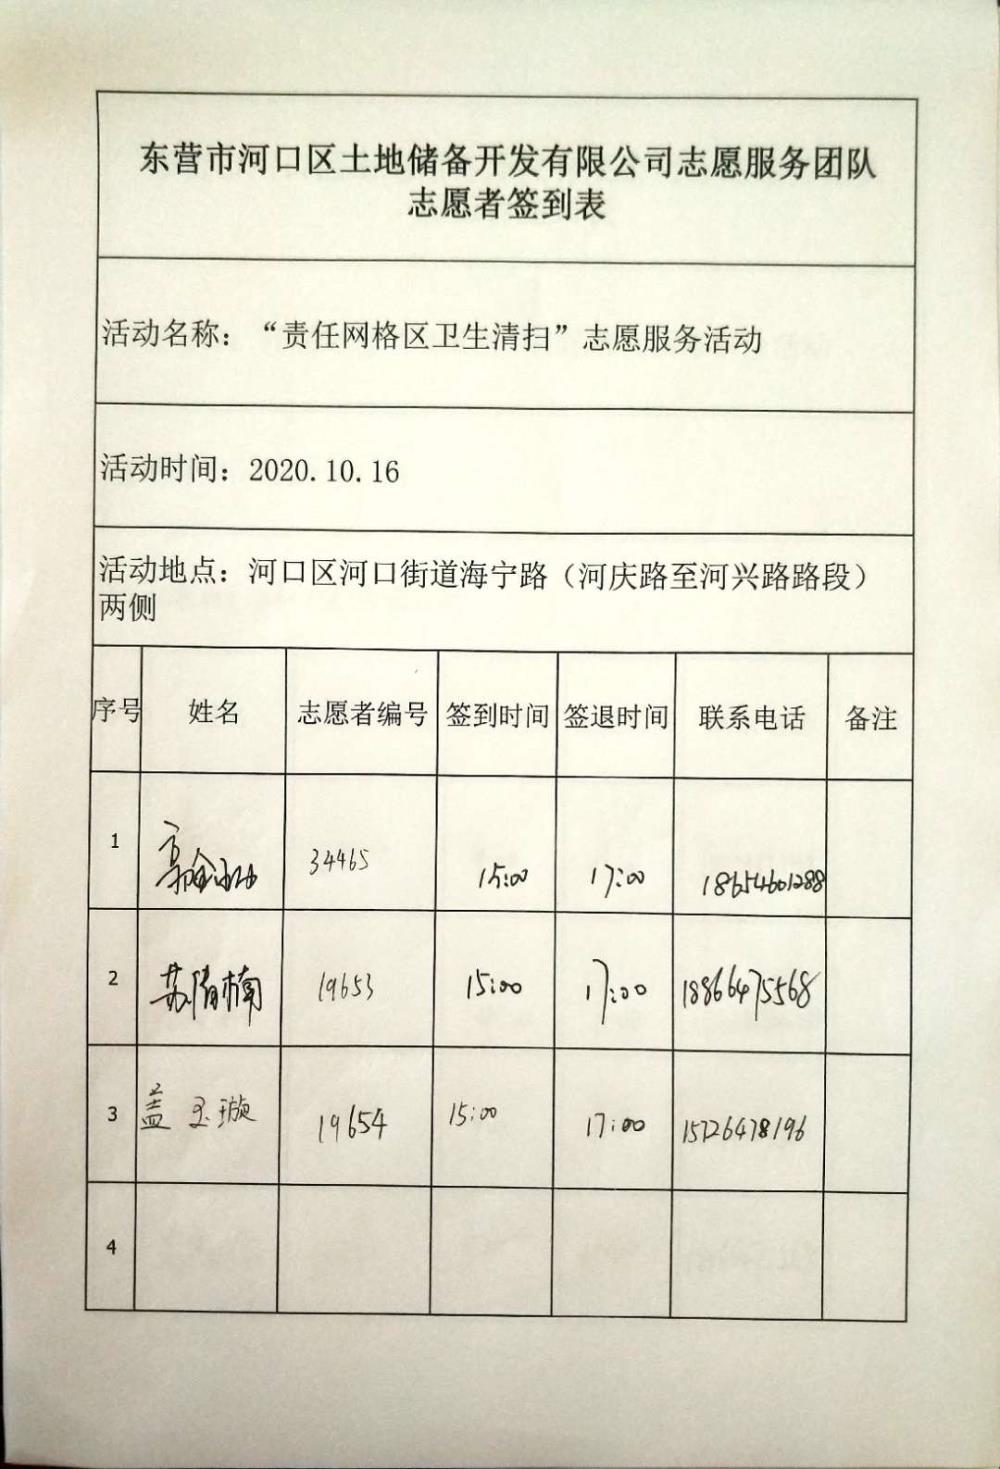 东营市河口区土地储备开发有限公司志愿服务团队
志愿者签到表
活动名称：“责任网格区卫生清扫”志愿服务活动
活动时间：2020.10.16
活动地点：河口区河口街道海宁路（河庆路至河兴路路段）
两侧
序号 姓名 志愿者编号 签到时间 签退时间 联系电话 备注
1 34465 15:00 17:00 18654601288
2 苏倩楠 19653 15:00 17:00 18866475568
3 盖玉璇 19654 15:00 17:00 15726478196
4